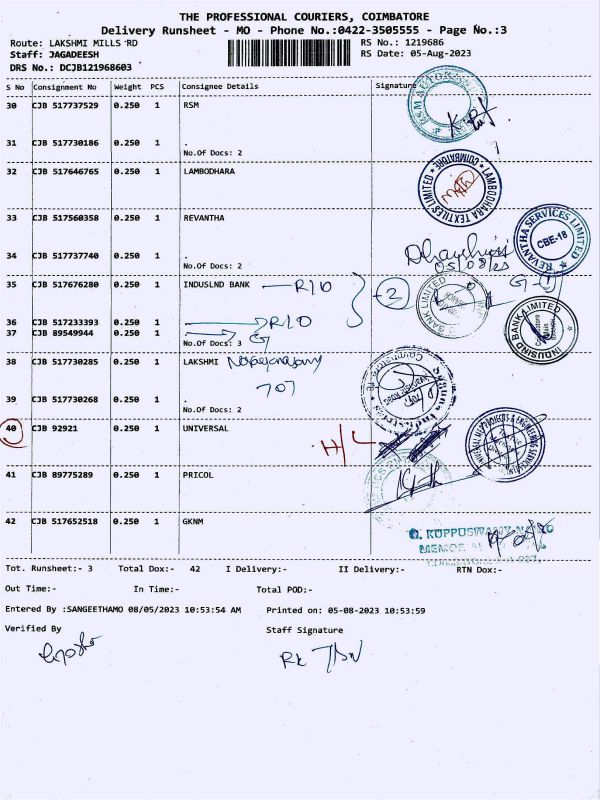 THE PROFESSIONAL COURIERS, COIMBATORE
Delivery Runsheet - MO - Phone No.:0422-3505555 - Page No.:3
Route: LAKSHMI MILLS RD
Staff: JAGADEESH
DRS No.: DCJB121968603
RS No.: 1219686
RS Date: 05-Aug-2023
S No Consignment No Weight PCS Consignee Details Signature
30 CJB 517737529 0.250 1 RSM
31 CJB 517730186 0.250 1 .
No.Of Docs: 2
32 CJB 517646765 0.250 1 LAMBODHARA
LAMBODHARA TEXTILES LIMITED
COIMBATORE
33 CJB 517560358 0.250 1 REVANTHA
REVANTHA SERVICES LIMITED
CBE-18
34 CJB 517737740 0.250 1 .
No.Of Docs: 2
05/08/23
35 CJB 517676280 0.250 1 INDUSLND BANK R/D
2
BANK LIMITED
INDUSIND BANK LIMITED
36 CJB 517233393 0.250 1 R/D
37 CJB 89549944 0.250 1 G
No.Of Docs: 3
38 CJB 517730285 0.250 1 LAKSHMI
707
39 CJB 517730268 0.250 1 .
No.Of Docs: 2
40 CJB 92921 0.250 1 UNIVERSAL
H/L
41 CJB 89775289 0.250 1 PRICOL
42 CJB 517652518 0.250 1 GKNM
KUPPUSWAMY NAIDU
Tot. Runsheet:- 3 Total Dox:- 42 I Delivery:- II Delivery:- RTN Dox:-
Out Time:- In Time:- Total POD:-
Entered By :SANGEETHAMO 08/05/2023 10:53:54 AM Printed on: 05-08-2023 10:53:59
Verified By Staff Signature